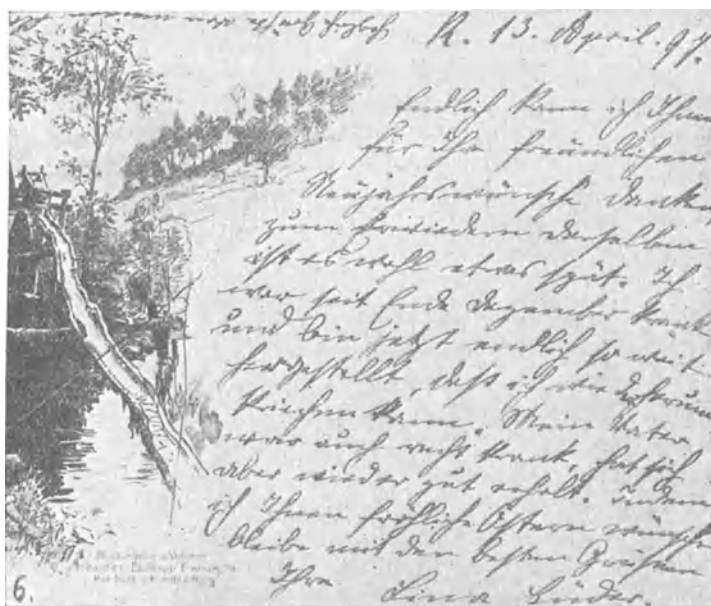 R. 13. April. 97.
Endlich kann ich Ihnen
für Ihre freundlichen
Neujahrswünsche danken,
zum Erwiedern derselben
ist es wohl etwas spät. Ich
war seit Ende Dezember krank
und bin jetzt endlich so weit
hergestellt, daß ich wie
kriechen kann. Mein Vater
war auch recht krank, hat sich
aber wieder gut erholt. Indem
ich Ihnen fröhliche Ostern wünsche
bleibe mit den besten Grüßen
Ihre Lina
6.